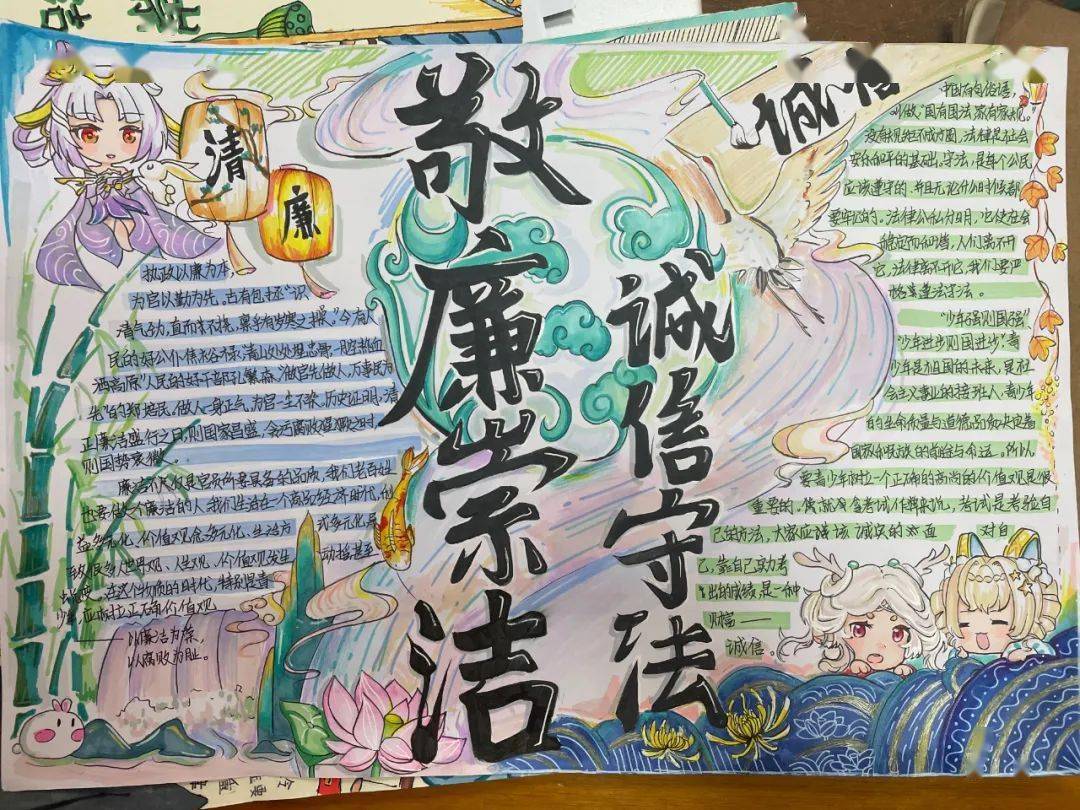 敬廉崇洁
诚信守法
清
廉
执政以廉为本,
为官以勤为先,古有包拯"识
清气劲,直而不挠,凛乎有岁寒之操。"今有人
民的好公仆焦裕禄,青山处处埋忠骨,一腔热血
洒高原"人民的好干部孔繁森、"做官先做人,万事民为
先"的郑培民,做人一身正气,为官一生不染,历史证明,清
正廉洁盛行之日,则国家昌盛,贪污腐败猖獗之时,
则国势衰微
廉洁不仅仅是官员所要具备的品质,我们老百姓
也要做个廉洁的人,我们生活在一个商品经济时代,他
益多元化、价值观念多元化、生活方式多元化,
致很多人世界观、人生观、价值观发生动摇甚至
在这个物质的时代,特别是青
少年,应树立正确价值观
——以廉洁为荣,
以腐败为耻。
诚信
中国有句俗话,
叫做"国有国法,家有家规。
没有规矩不成方圆,法律是社会
安乐和平的基础,守法,是每个公民
应该遵守的,并且无论什么时候都
要牢记的。法律公私分明,它使社会
稳定而和谐,人们离不开
它,法律离不开它,我们要严
格遵守法。
"少年强则国强",
"少年进步则国进步"青
少年是祖国的未来,是社
会主义事业的接班人,青少年
的生命质量与道德品质决定着
国家和民族的前途与命运。所以
要青少年树立一个正确的高尚的价值观是很
重要的,像就没拿考试作弊来说,考试是考验自
己的方法,大家应该诚实的面对自
己,靠自己努力考
出的成绩,是一种
财富——
诚信。